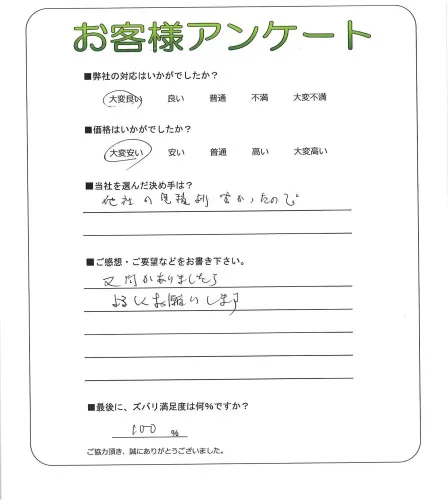 お客様アンケート
■弊社の対応はいかがでしたか?
大変良い 良い 普通 不満 大変不満
■価格はいかがでしたか?
大変安い 安い 普通 高い 大変高い
■当社を選んだ決め手は?
他社の見積り安かったので
■ご感想・ご要望などをお書き下さい。
又何かありましたら
よろしくお願いします
■最後に、ズバリ満足度は何%ですか?
100 %
ご協力頂き、誠にありがとうございました。